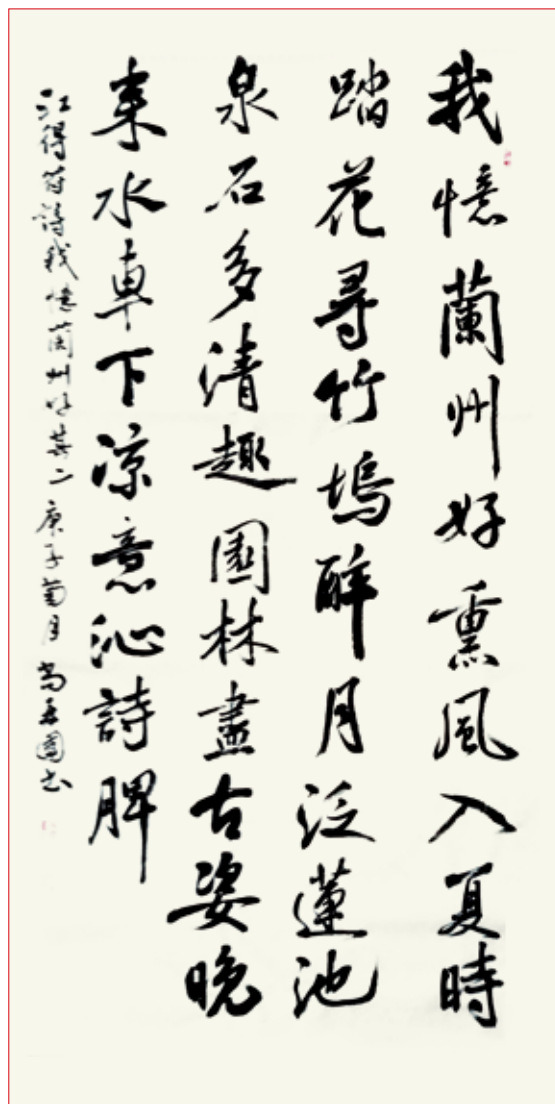 我憶蘭州好熏風入夏時
踏花尋竹塢醉月泛蓮池
泉石多清趣園林盡古姿晚
來水車下涼意沁詩脾
江得符詩我憶蘭州好其二 庚子菊月 尚 國書